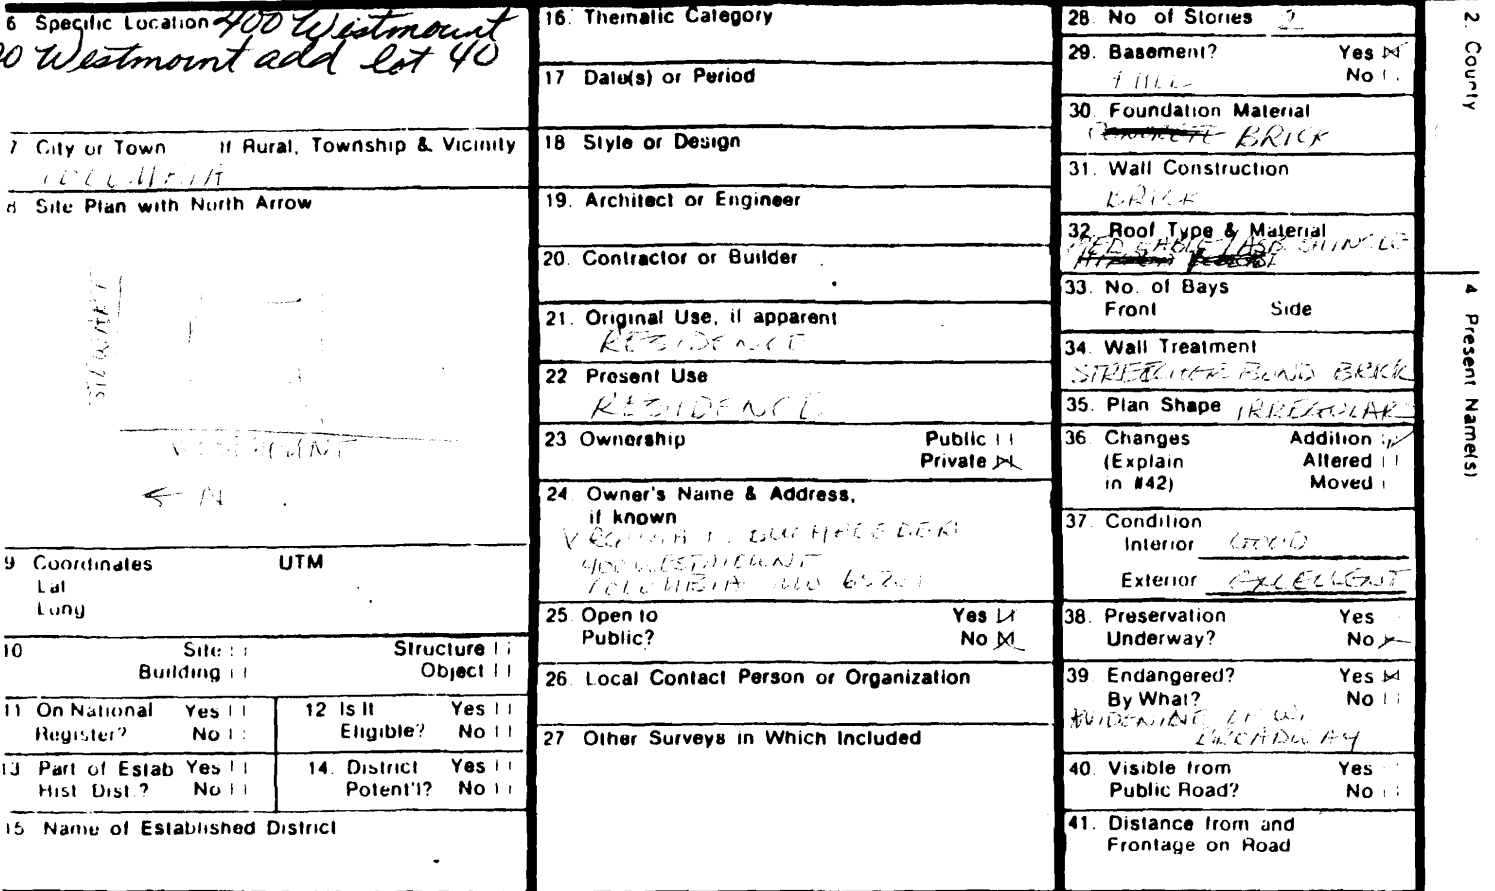 6 Specific Location 400 Westmount
Westmount add lot 40
7 City or Town If Rural, Township & Vicinity
COLUMBIA
8 Site Plan with North Arrow
STEWART
WESTMOUNT
← N
9 Coordinates UTM
Lat
Long
10 Site Structure
Building Object
11 On National Register? Yes No
12 Is It Eligible? Yes No
13 Part of Estab Hist Dist.? Yes No
14. District Potent'l? Yes No
15 Name of Established District
16. Thematic Category
17 Date(s) or Period
18 Style or Design
19. Architect or Engineer
20. Contractor or Builder
21. Original Use, if apparent
RESIDENCE
22 Present Use
RESIDENCE
23 Ownership Public
Private
24. Owner's Name & Address,
if known
400 WESTMOUNT
COLUMBIA MO 65201
25. Open to Yes
Public? No
26. Local Contact Person or Organization
27 Other Surveys in Which Included
28. No of Stories 2
29. Basement? Yes
FULL No
30. Foundation Material
CONCRETE BRICK
31. Wall Construction
BRICK
32. Roof Type & Material
GABLE SHINGLE
33. No. of Bays
Front Side
34. Wall Treatment
STRETCHER BOND BRICK
35. Plan Shape IRREGULAR
36. Changes Addition
(Explain Altered
in #42) Moved
37. Condition
Interior GOOD
Exterior EXCELLENT
38. Preservation Yes
Underway? No
39. Endangered? Yes
By What? No
WIDENING OF W.
BROADWAY
40. Visible from Yes
Public Road? No
41. Distance from and
Frontage on Road
2. County
4. Present Name(s)